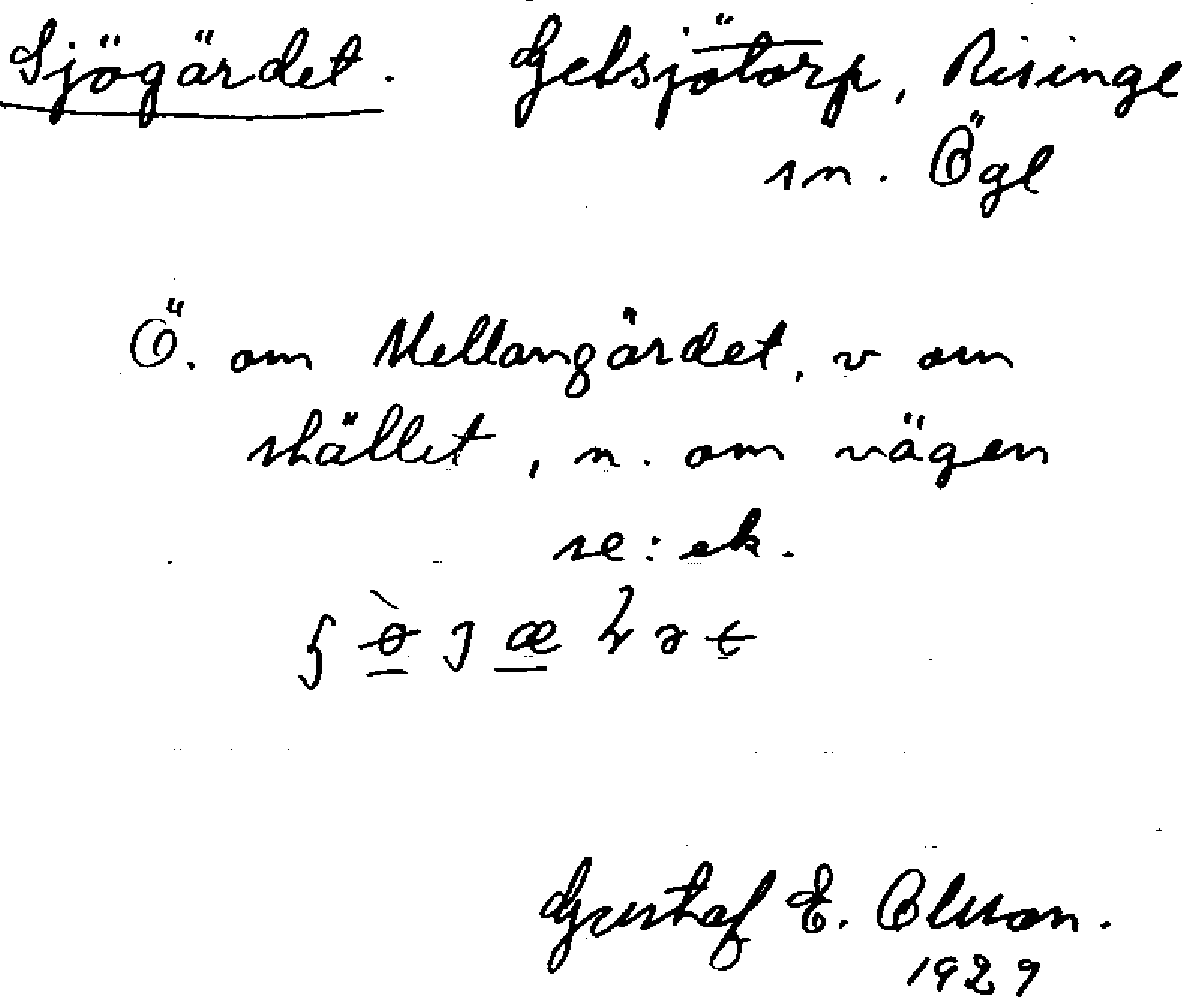 Sjögärdet. Gebsjötorp, Risinge
sn. Ögl
Ö. om Mellangärdet, v om
skället, n. om vägen
se: ek.
Gustaf E. Olsson.
1929